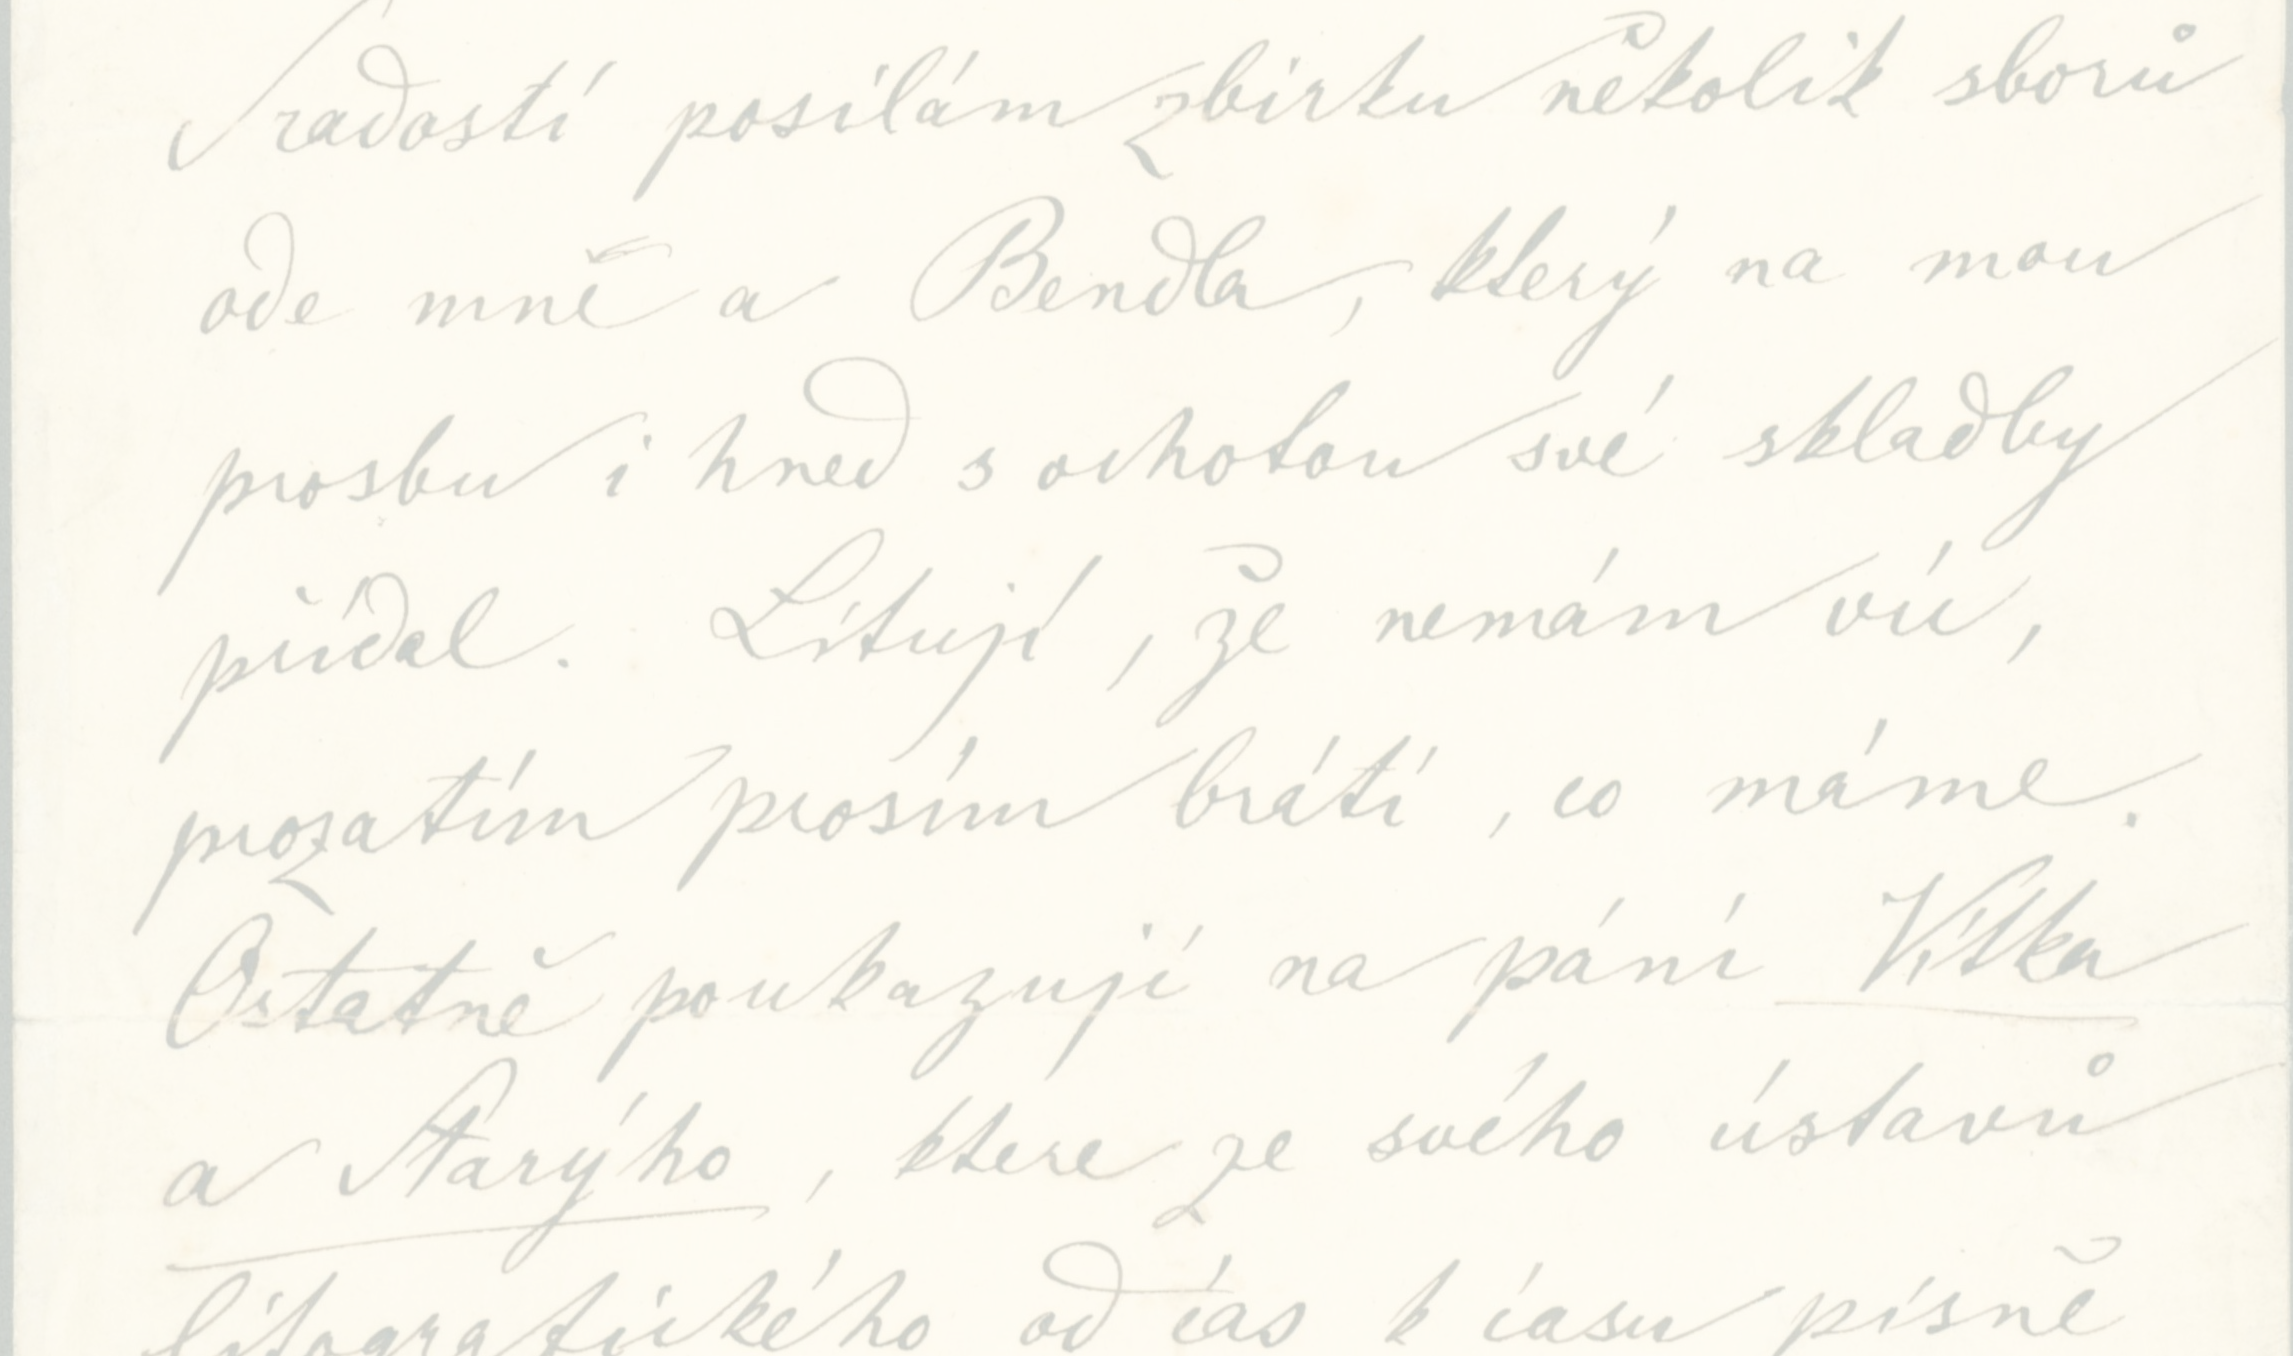 S radostí posílám zbírku několik sborů
ode mně a Bendla, který na mou
prosbu i hned s ochotou své skladby
přidal. Lituji, že nemám víc,
prozatím prosím bráti, co máme.
Ostatně poukazuji na pání Vítka
a Starýho, ktere ze svého ústavů
litografického od čas k času písně